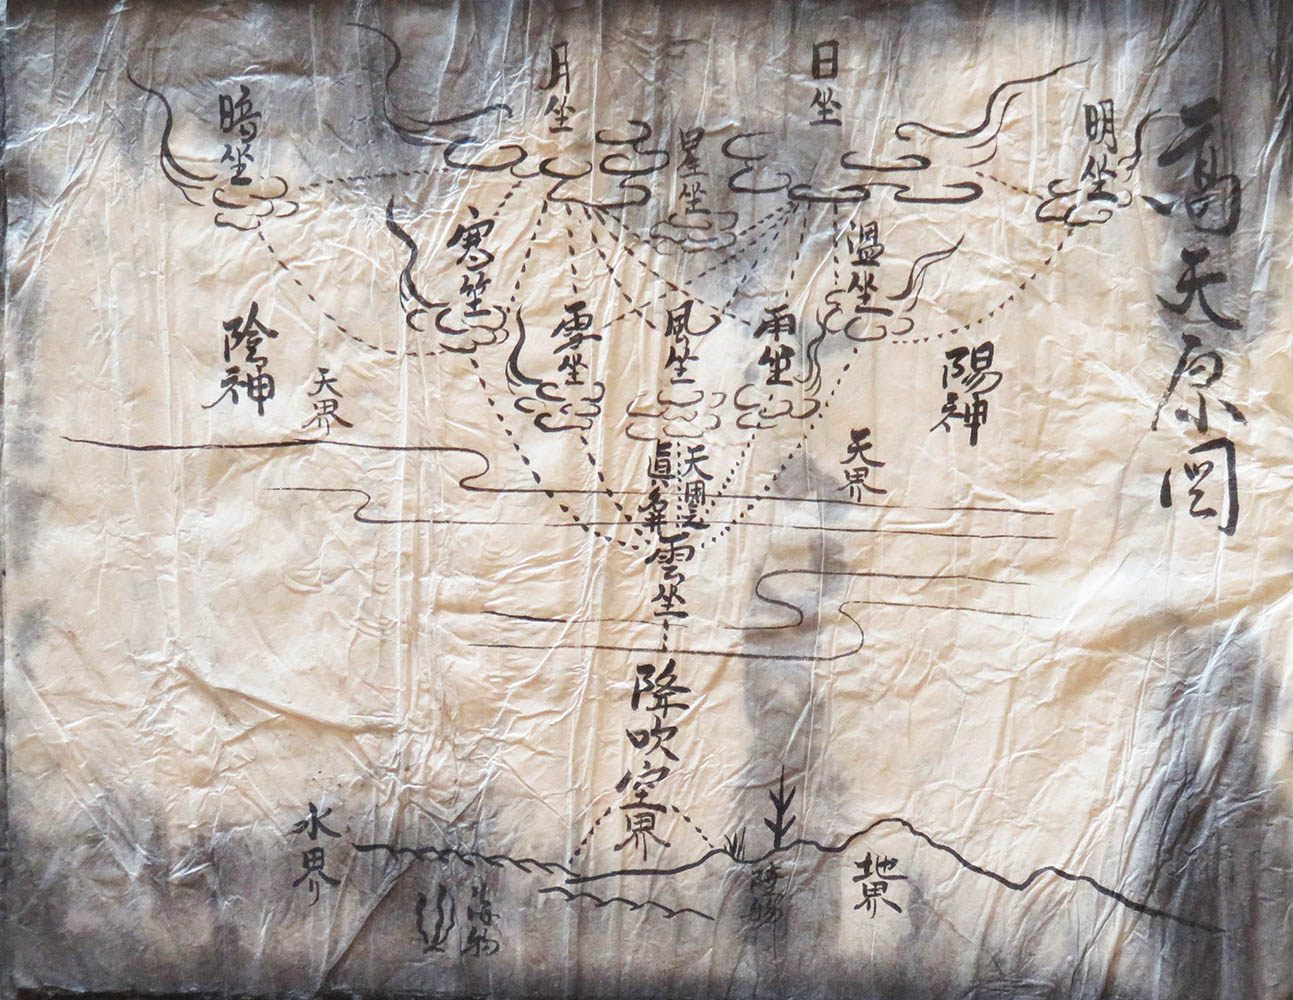 高天原図
明坐
日坐
星坐
月坐
暗坐
温坐
雨坐
風坐
雲坐
寒坐
陽神
陰神
天界
天界
眞名井
雲坐
降吹空界
地界
水界
陸物
海物